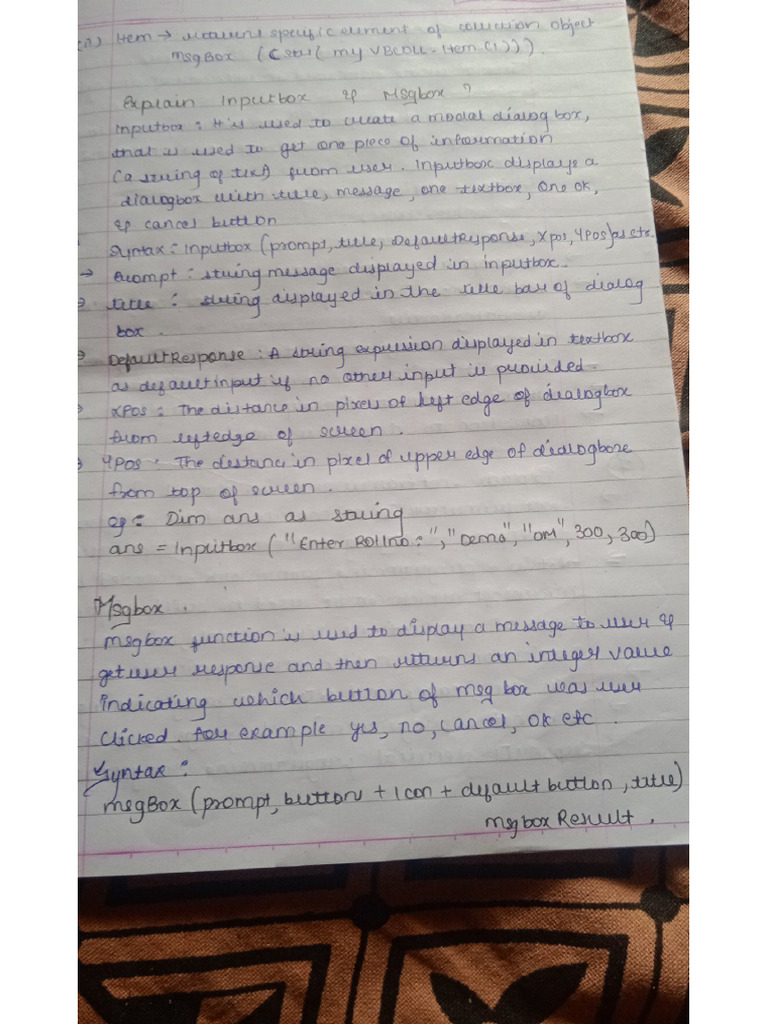 Item → returns specific element of collection object
MsgBox (Cstr( my VBColl.Item (1))).
Explain Inputbox & Msgbox ?
Inputbox : It is used to create a modal dialog box,
that is used to get one piece of information
(a string of text) from user. Inputbox displays a
dialogbox with title, message, one textbox, one ok,
& cancel button
Syntax : Inputbox (prompt, title, DefaultResponse, Xpos, YPos) as str.
→ Prompt : string message displayed in inputbox.
→ title : string displayed in the title bar of dialog
box .
→ DefaultResponse : A string expression displayed in textbox
as default input if no other input is provided.
→ XPos : The distance in pixels of left edge of dialogbox
from leftedge of screen .
→ YPos : The distanc in pixel of upper edge of dialogboxe
from top of screen .
eg : Dim ans as string
ans = Inputbox ( "Enter Rollno : ", "Demo", "OM", 300, 300)
Msgbox .
msgbox function is used to display a message to user &
get user response and then returns an integer value
indicating which button of msg box was user
clicked. for example yes, no, cancel, ok etc .
Syntax :
msgBox (prompt, button + Icon + default button , title)
msgbox Result .